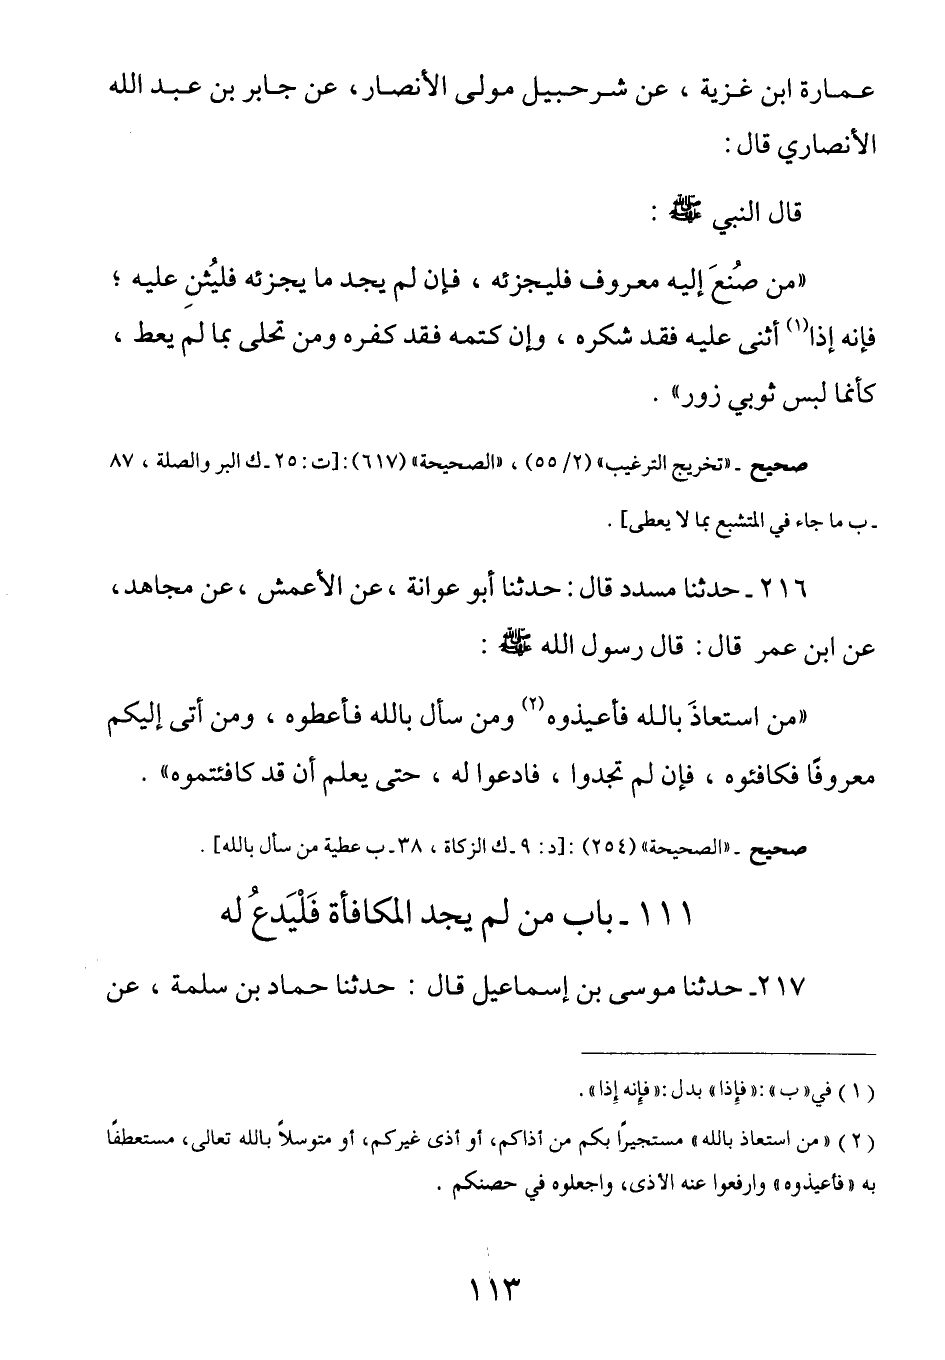 عمارة ابن غزية ، عن شرحبيل مولى الأنصار، عن جابر بن عبد الله
الأنصاري قال :
قال النبي ﷺ :
«من صُنعَ إليه معروف فليجزئه ، فإن لم يجد ما يجزئه فليُثنِ عليه ؛
فإنه إذا(١) أثنى عليه فقد شكره ، وإن كتمه فقد كفره ومن تحلى بما لم يعط ،
كأنما لبس ثوبي زور» .
صحيح ـ «تخريج الترغيب» (٢/ ٥٥) ، «الصحيحة» (٦١٧) :[ت : ٢٥ ـ ك البر والصلة ، ٨٧
ـ ب ما جاء في المتشبع بما لا يعطى] .
٢١٦ ـ حدثنا مسدد قال : حدثنا أبو عوانة ، عن الأعمش ، عن مجاهد،
عن ابن عمر قال : قال رسول الله ﷺ :
«من استعاذَ بالله فأعيذوه(٢) ومن سأل بالله فأعطوه ، ومن أتى إليكم
معروفًا فكافئوه ، فإن لم تجدوا ، فادعوا له ، حتى يعلم أن قد كافئتموه» .
صحيح ـ «الصحيحة» (٢٥٤) :[د : ٩ ـ ك الزكاة ، ٣٨ ـ ب عطية من سأل بالله] .
١١١ ـ باب من لم يجد المكافأة فَلْيَدعُ له
٢١٧ ـ حدثنا موسى بن إسماعيل قال : حدثنا حماد بن سلمة ، عن
(١) في« ب» :«فإذا» بدل :«فإنه إذا» .
(٢) « من استعاذ بالله» مستجيرًا بكم من أذاكم، أو أذى غيركم، أو متوسلاً بالله تعالى، مستعطفًا
به «فأعيذوه» وارفعوا عنه الأذى، واجعلوه في حصنكم .
١١٣